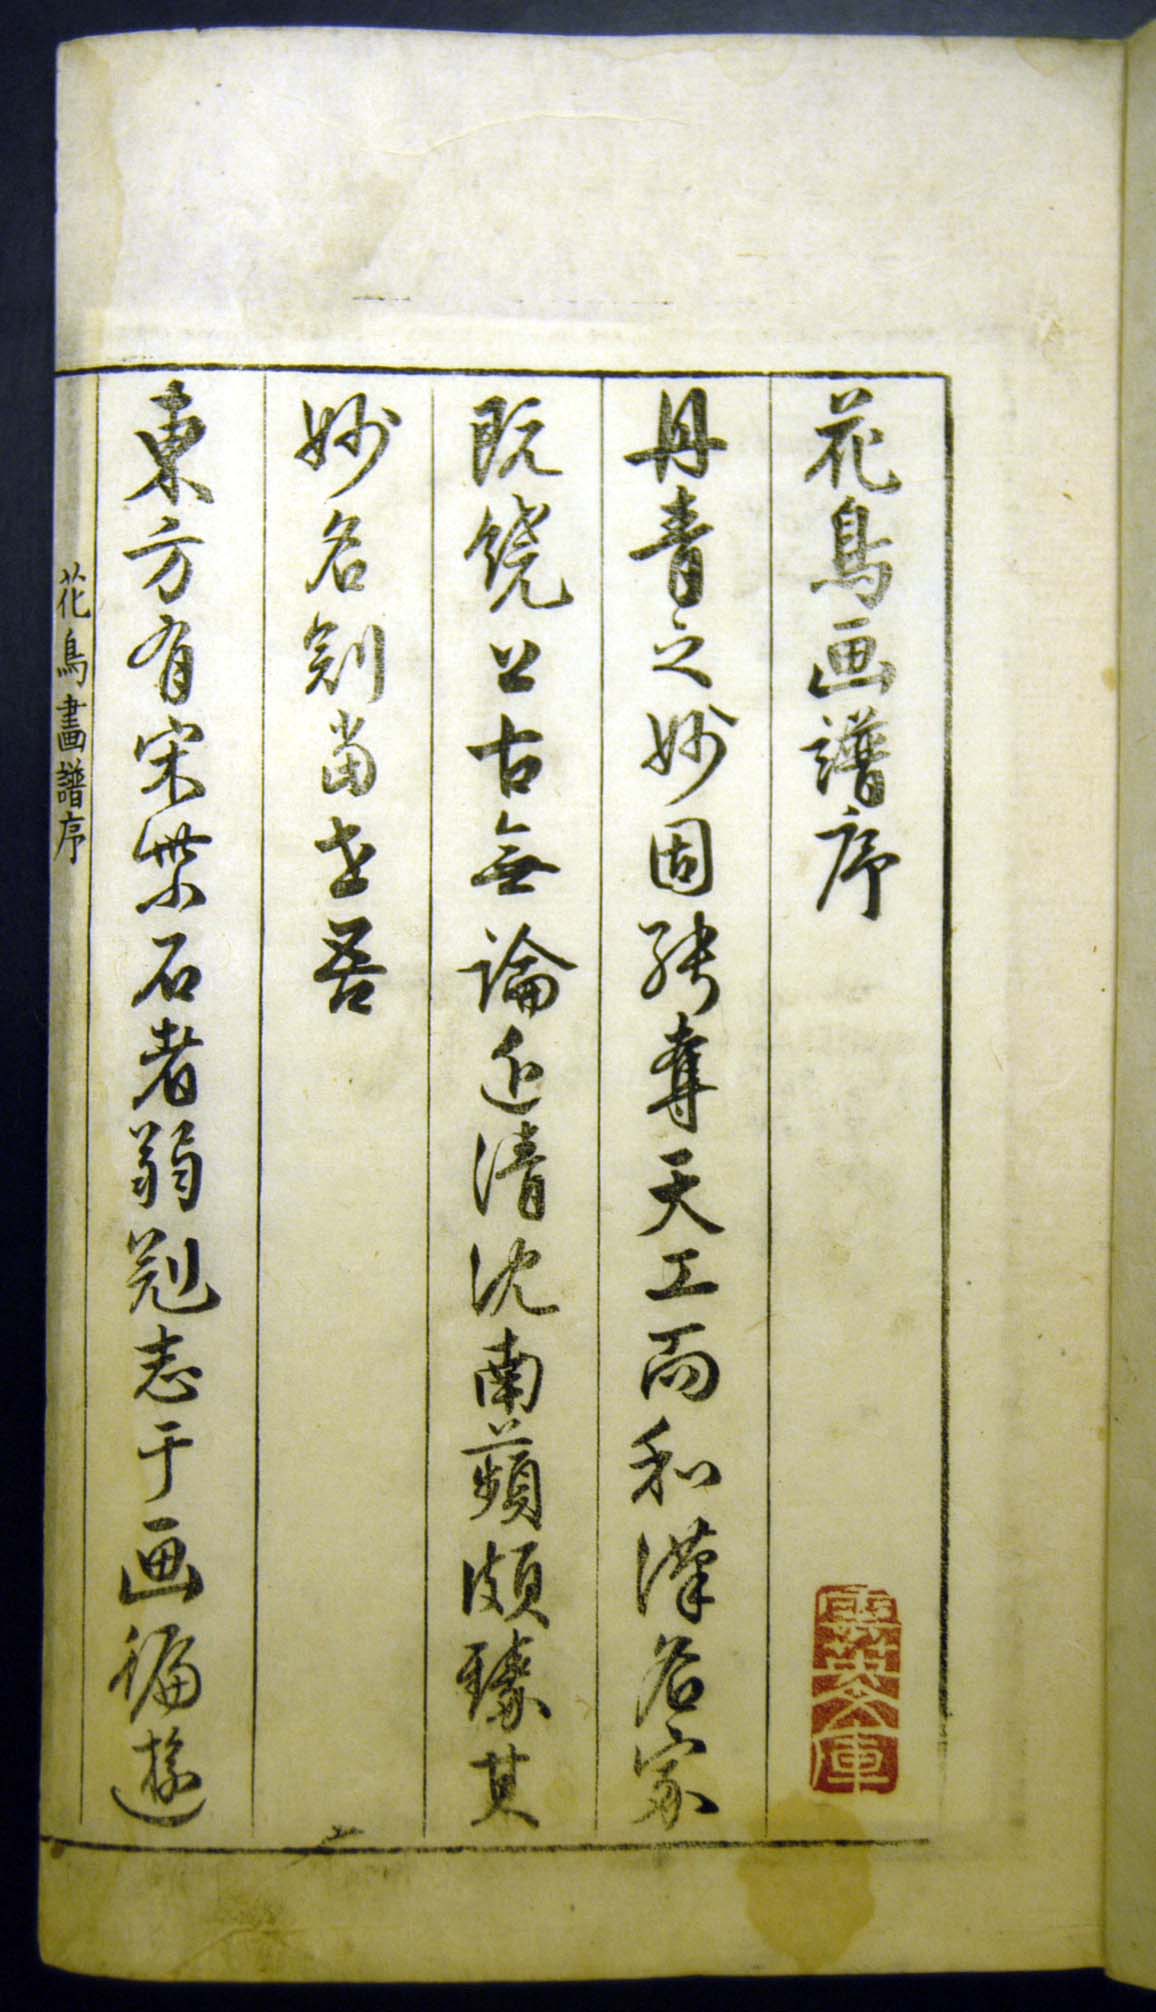 花鳥画譜序
丹青之妙固能奪天工而和漢名家
既饒上古無論近清沈南蘋頗臻其
妙名剏当世吾
東方有宋紫石者弱冠志于画徧遊
花鳥畫譜序
雲英文庫